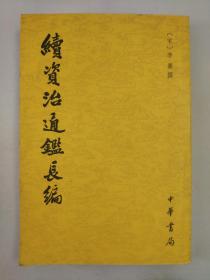 續資治通鑑長編
〔宋〕李燾撰
中華書局